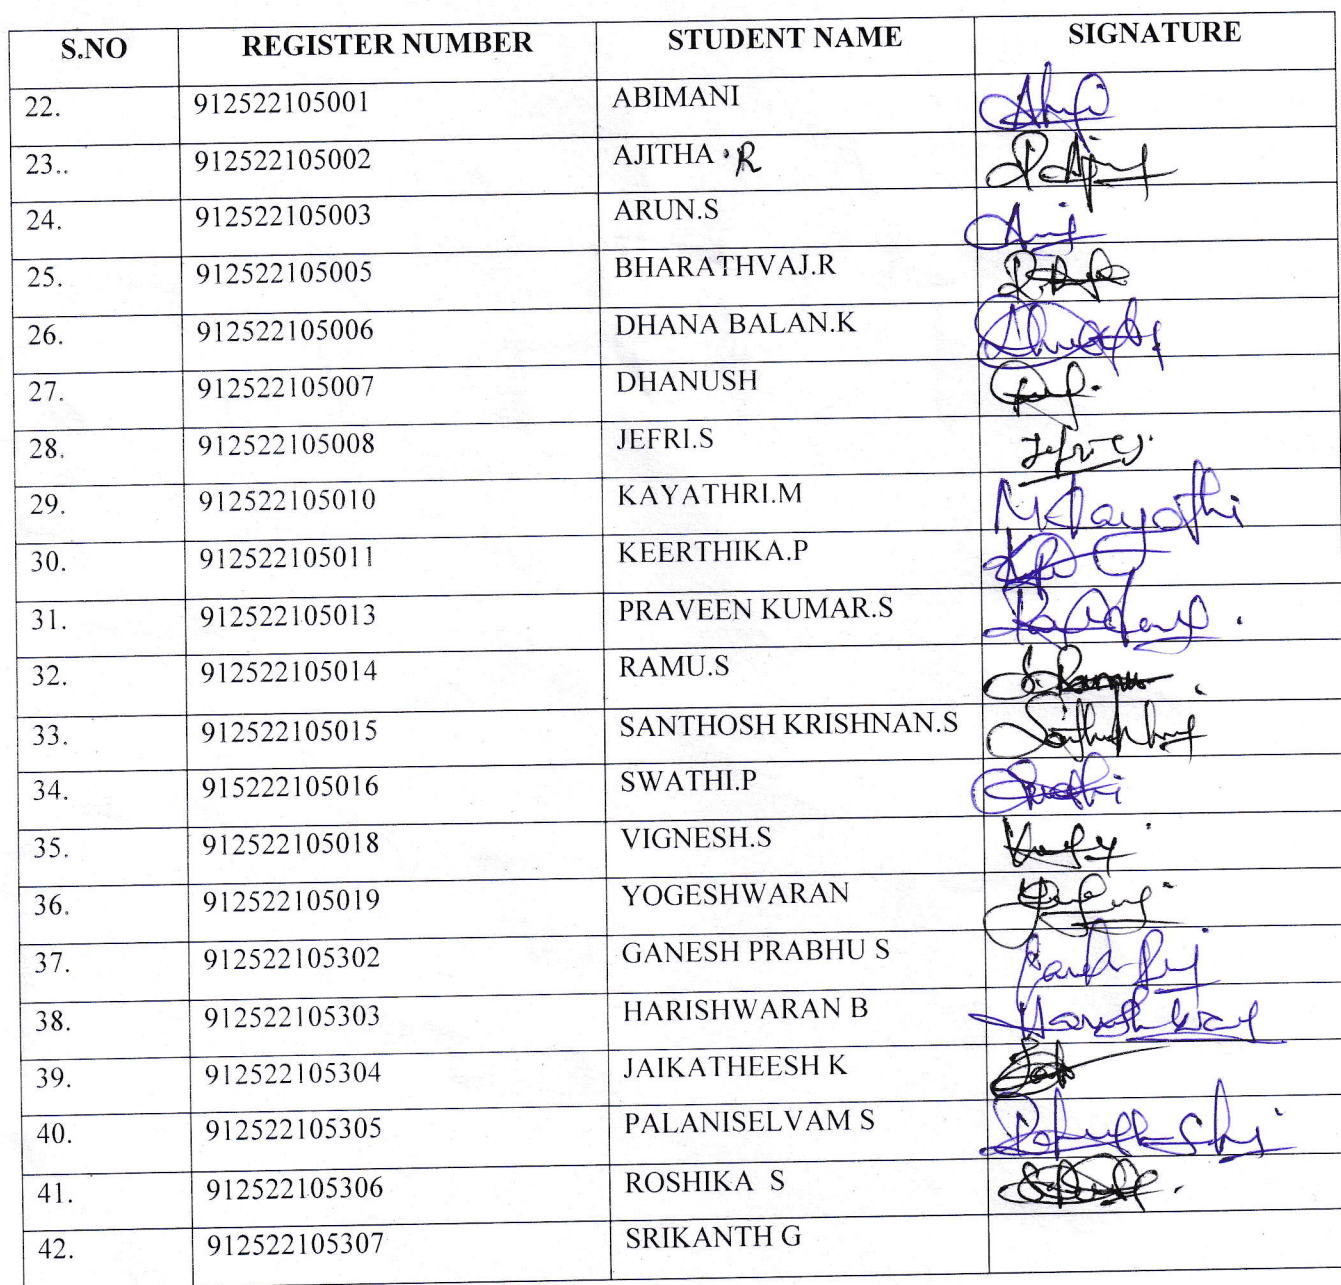 S.NO REGISTER NUMBER STUDENT NAME SIGNATURE
22. 912522105001 ABIMANI
23.. 912522105002 AJITHA .R
24. 912522105003 ARUN.S
25. 912522105005 BHARATHVAJ.R
26. 912522105006 DHANA BALAN.K
27. 912522105007 DHANUSH
28. 912522105008 JEFRI.S
29. 912522105010 KAYATHRI.M
30. 912522105011 KEERTHIKA.P
31. 912522105013 PRAVEEN KUMAR.S
32. 912522105014 RAMU.S S. Ramu
33. 912522105015 SANTHOSH KRISHNAN.S
34. 915222105016 SWATHI.P
35. 912522105018 VIGNESH.S
36. 912522105019 YOGESHWARAN
37. 912522105302 GANESH PRABHU S
38. 912522105303 HARISHWARAN B
39. 912522105304 JAIKATHEESH K
40. 912522105305 PALANISELVAM S
41. 912522105306 ROSHIKA S
42. 912522105307 SRIKANTH G